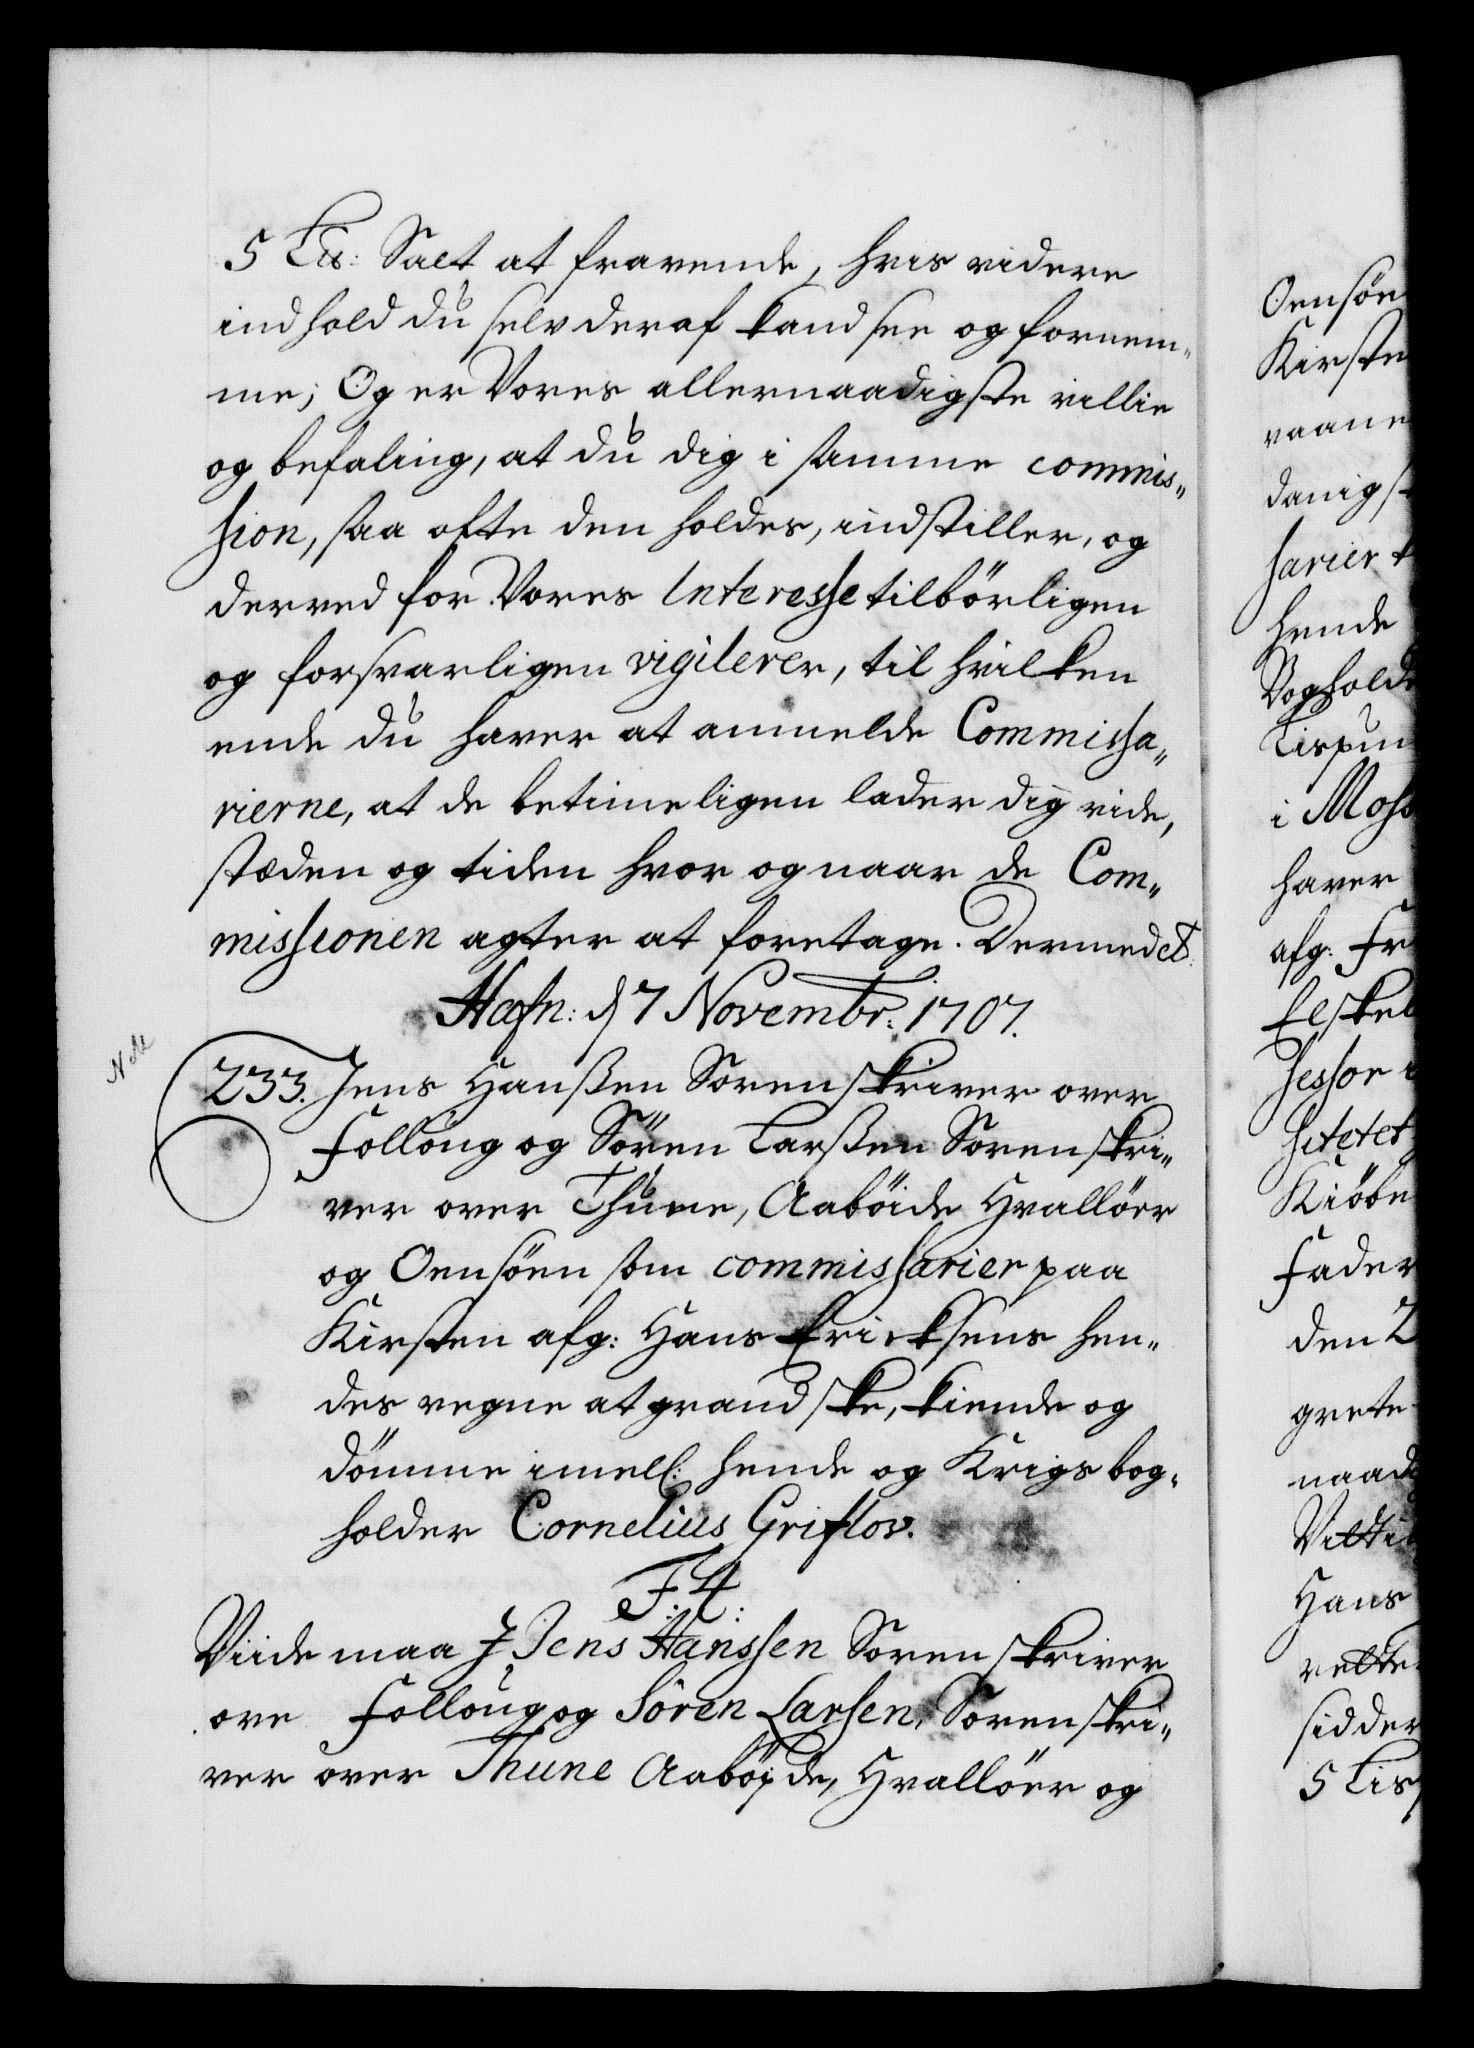 5 Lis: Salt at fravende, hvis videre
indhold du selv deraf kand see og fornem„
me; Og er Vores allernaadigste villie
og befaling, at du dig i samme commis„
sion, saa ofte den holdes, indstiller, og
derved for Vores Interesse tilbörligen
og forsvarligen vigilerer, til hvilken
ende du haver at anmelde Commissa„
rierne, at de betimeligen lader dig vide,
stæden og tiden hvor og naar de Com„
missionen agter at foretage. Dermed etc.
Hafn: d 7 Novembr: 1707.
233. Jens Hanssen Sorenskriver over
Follöug og Sören Larssen Sorenskri„
ver over Thune, Aaböide Hvallöer
og Oensöen som commissarier paa
Kirsten afg: Hans Ericksens hen„
des vegne at grandske, kiende og
dömme imell: hende og Krigs bog„
holder Cornelius Griflov.
F. 4:
Viide maa J Jens Hanssen Sorenskriver
ove Follöug og Sören Larsen, Sorenskri„
ver over Thune Aaböjde, Hvallöer og
Oensöe
Kirste
vaane
danigs
sarier
hende
Bogholde
Lispun
i Moss
haver
afg: Fr
Elskel
sessor
sitetet
Kiöbe
Fader
den 2
grete
naad
Hans
sidder
5 Lis